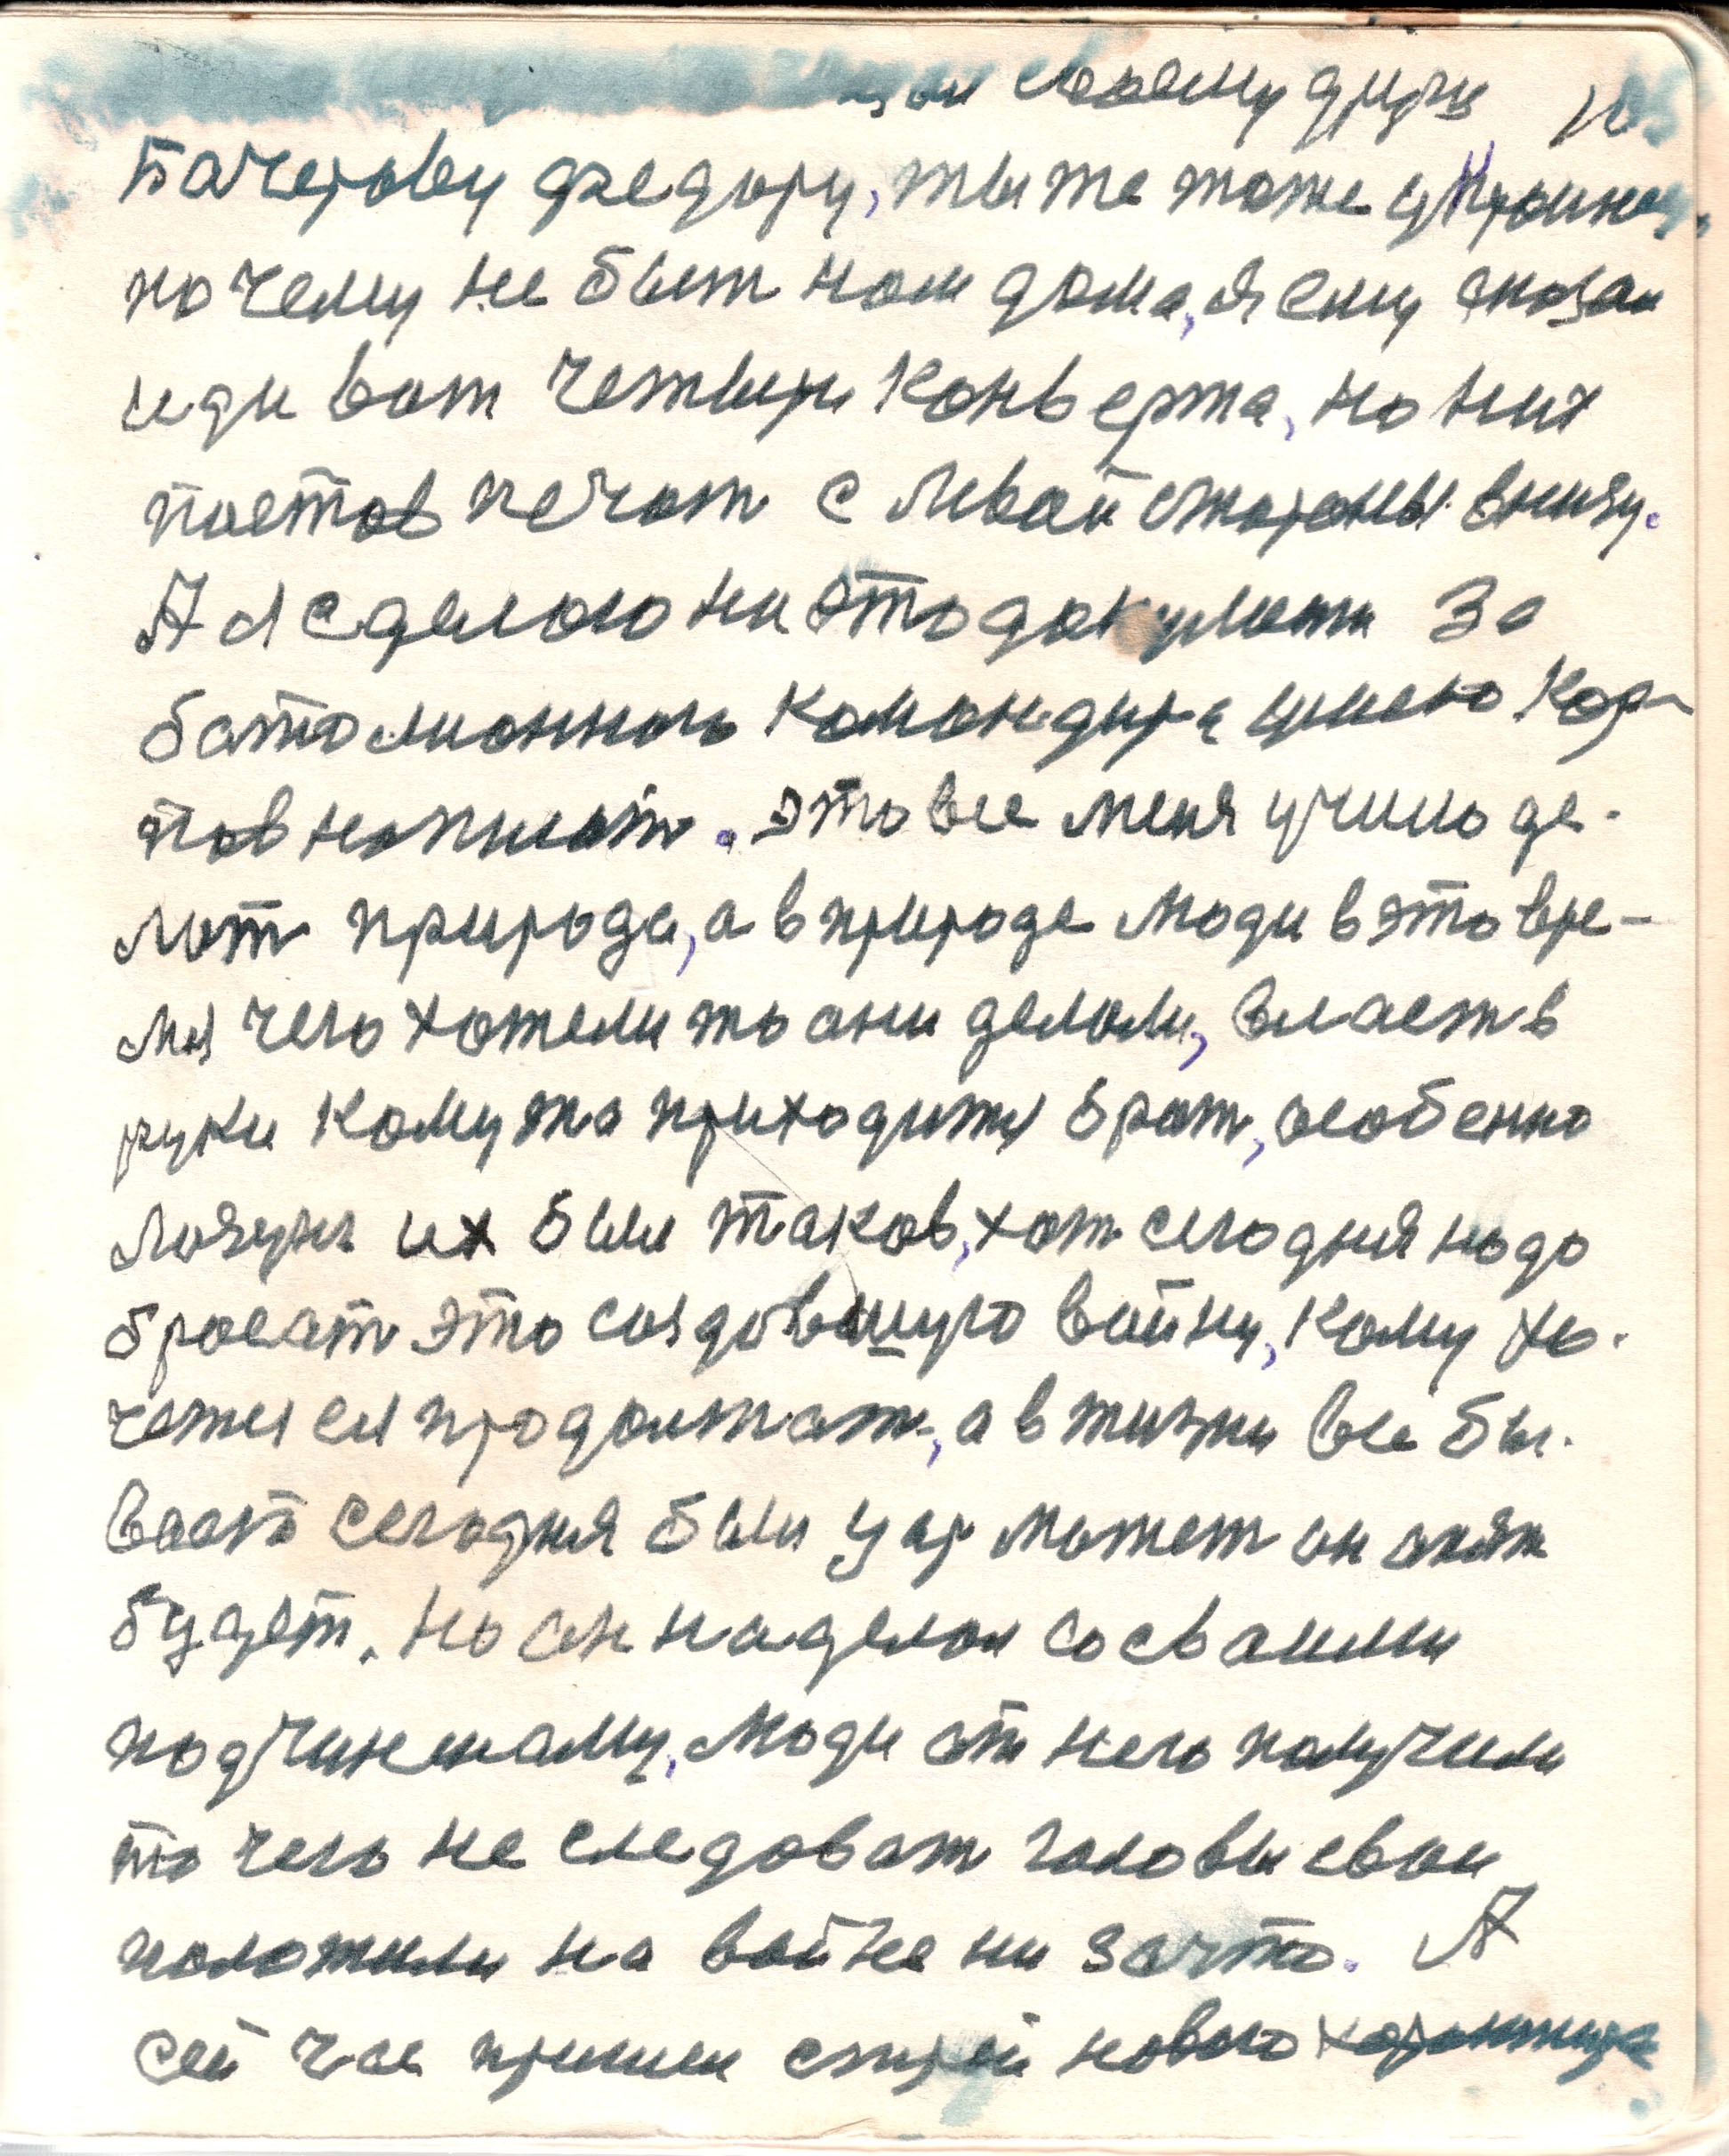 своему другу 105
Бочерову Федору, ты же тоже украинец,
почему не быт нам дома, я ему сказал
иди вот четыри конверта, на них
постов печат с левай стораны внизу.
А я сделою ни это документи за
батолионного командира умею Кор-
пов написат. Это все меня учило де-
лат природа, а в природе люди в это вре-
мя чего хотели то ани делали, власт в
руки кому то приходится брат, особенно
лозунг их был таков, хот сегодня надо
бросат это создовшую войну, кому хо-
чется ей продолжат, а в жизни все бы-
вает сегодня был царь может он опят
будет. Но он наделал со своими
подчиненому, люди от него получили
то чего не следоват головы свои
положили на войне ни за что. А
сей час пришел строй нового характира